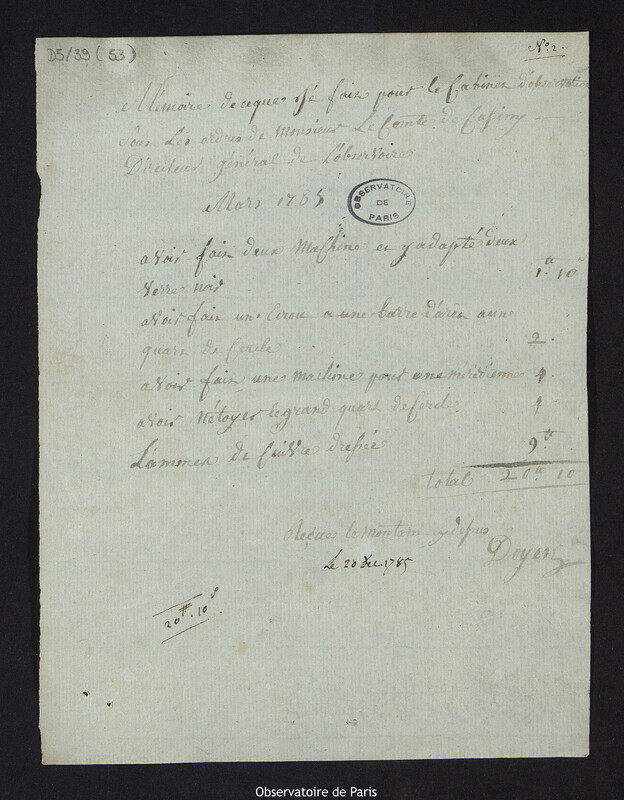 D5/39 (53)
N.º 2.
Mémoire de ceque jé fait pour le Cabinet d'observation
sous les ordres de Monsieur Le Comte de Cassiny
Directeur général de L'observoire
Mars 1785
OBSERVATOIRE
DE
PARIS
avoir fait deux Machine et y adapté deux
verre noir 1.tt 10s
avoir fait un Ecrou a une barre d'aret a une
quart de Cercle 2.
avoir fait une machine pour une meridienne 4.
avoir Netoyer le grand quart de Cercle. 4
L'ammes de Cuivre dressée 9tt
total 20tt 10
Reçues le montant cy desus
Doyen
Le 20 Dec. 1785
20tt. 10s
Observatoire de Paris